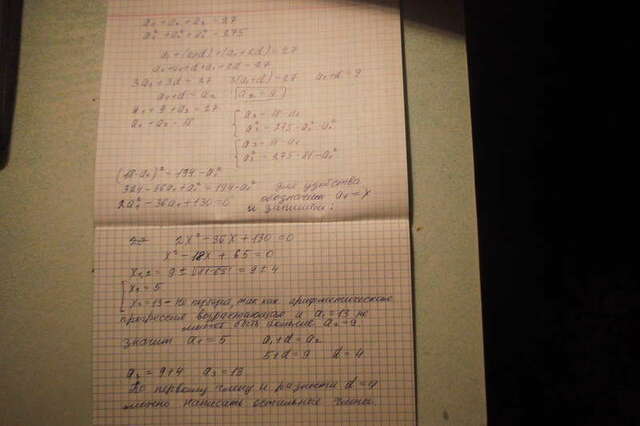 a₁ + a₂ + a₃ = 27
a₁² + a₂² + a₃² = 275
a₁ + (a₁+d) + (a₁+2d) = 27
a₁ + a₁ + d + a₁ + 2d = 27
3a₁ + 3d = 27 3(a₁+d) = 27 a₁+d = 9
a₁ + d = a₂ a₂ = 9
a₁ + 9 + a₃ = 27
a₁ + a₃ = 18
{ a₃ = 18 - a₁
a₃² = 275 - a₁² - a₂²
{ a₃ = 18 - a₁
a₃² = 275 - 81 - a₁²
(18 - a₁)² = 194 - a₁²
324 - 36a₁ + a₁² = 194 - a₁² для удобства
2a₁² - 36a₁ + 130 = 0 обозначим a₁ = x
и запишем:
2x² - 36x + 130 = 0
x² - 18x + 65 = 0
x₁,₂ = 9 ± √(81-65) = 9 ± 4
[ x₁ = 5
x₂ = 13 - не подходит, так как арифметическая
прогрессия возрастающая и a₁ = 13 не
может быть больше a₂ = 9
значит a₁ = 5 a₁ + d = a₂
5 + d = 9 d = 4
a₃ = 9 + 4 a₃ = 13
По первому члену и разности d = 4
можно написать остальные члены.